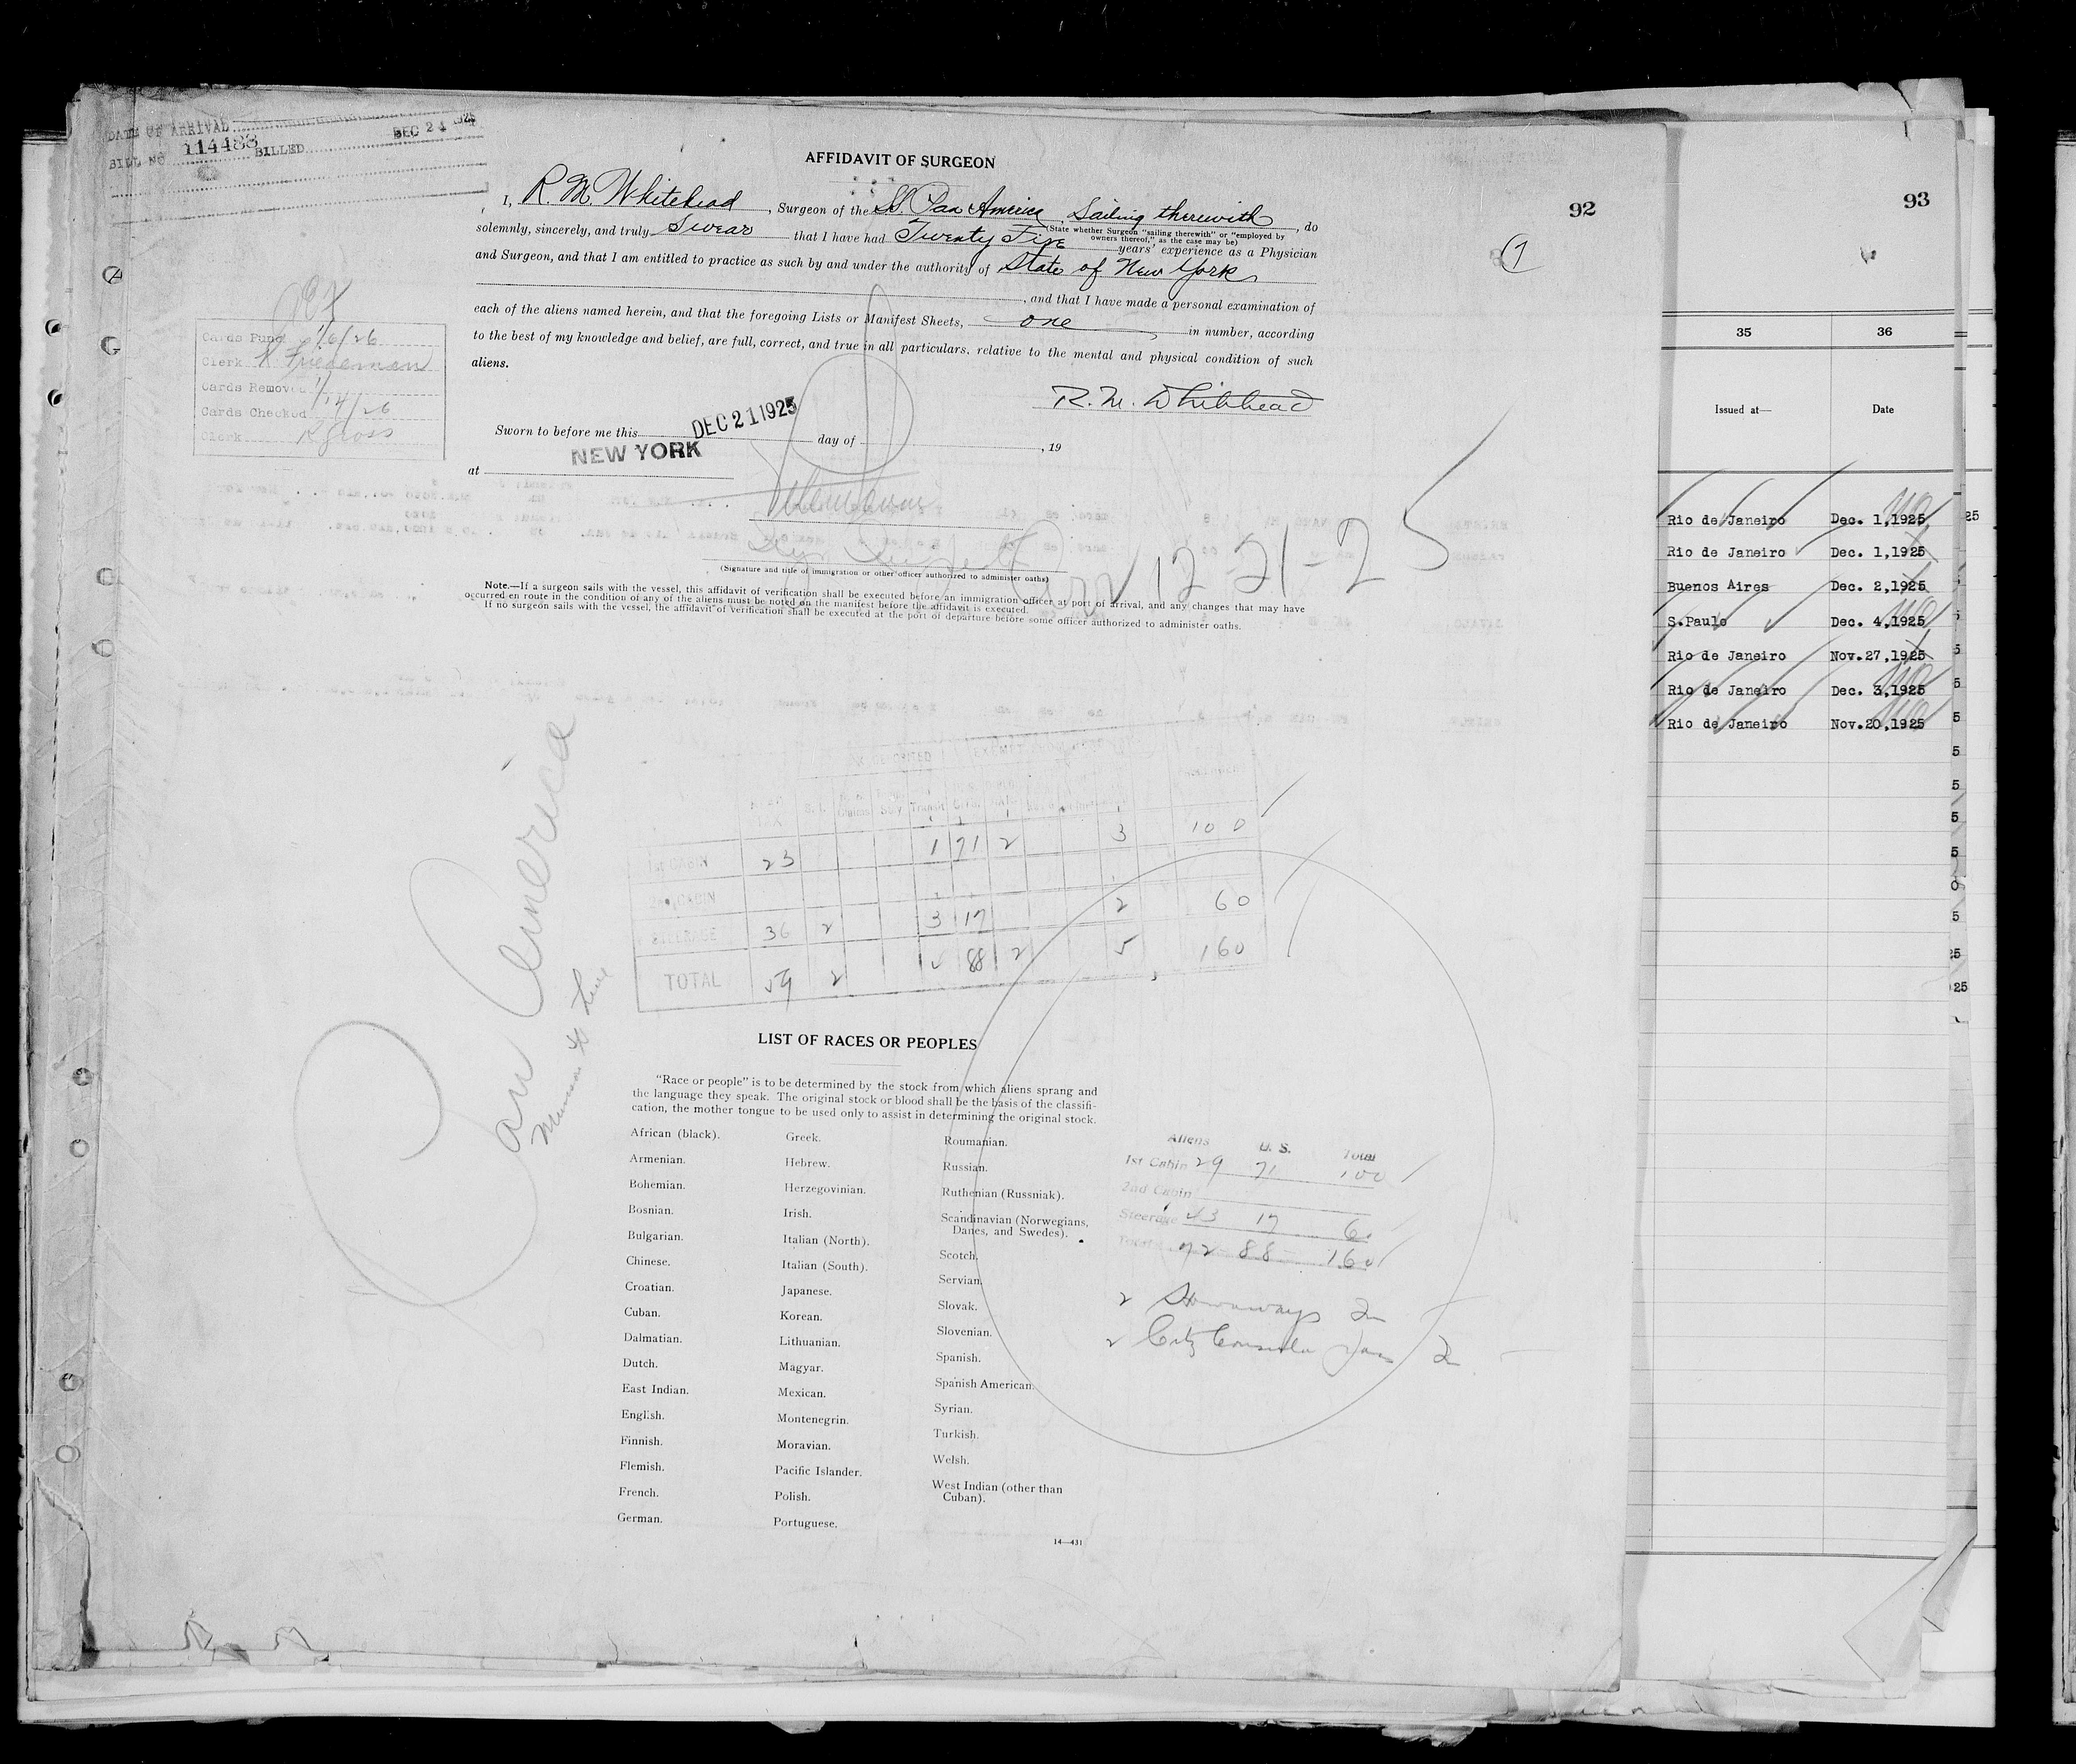 DATE OF ARRIVAL
BILL NO 114488 BILLED DEC 24 1925
92
93
AFFIDAVIT OF SURGEON
I, R. M. Whitehead, Surgeon of the SS. Pan America, Sailing therewith, do
(State whether Surgeon "sailing therewith" or "employed by
owners thereof," as the case may be)
solemnly, sincerely, and truly Swear that I have had Twenty Five years' experience as a Physician
and Surgeon, and that I am entitled to practice as such by and under the authority of State of New York
, and that I have made a personal examination of
each of the aliens named herein, and that the foregoing Lists or Manifest Sheets, one in number, according
to the best of my knowledge and belief, are full, correct, and true in all particulars, relative to the mental and physical condition of such
aliens.
R. M. Whitehead
1
Cards Pund 1/6/26
Clerk
Cards Removed
Cards Checked 1/14/26
Clerk R Gross
Sworn to before me this DEC 21 1925 day of , 19
at NEW YORK
Arr 12-21-25
(Signature and title of immigration or other officer authorized to administer oaths)
Note.—If a surgeon sails with the vessel, this affidavit of verification shall be executed before an immigration officer at port of arrival, and any changes that may have
occurred en route in the condition of any of the aliens must be noted on the manifest before the affidavit is executed.
If no surgeon sails with the vessel, the affidavit of verification shall be executed at the port of departure before some officer authorized to administer oaths.
35 36
Issued at— Date
Rio de Janeiro Dec. 1,1925
Rio de Janeiro Dec. 1,1925
Buenos Aires Dec. 2,1925
S.Paulo Dec. 4,1925
Rio de Janeiro Nov.27,1925
Rio de Janeiro Dec. 3,1925
Rio de Janeiro Nov.20,1925
Pan America
Munson SS Line
1st CABIN 23 1 71 2 3 100
2nd CABIN
STEERAGE 36 2 3 17 2 60
TOTAL 59 2 88 2 5 160
LIST OF RACES OR PEOPLES
"Race or people" is to be determined by the stock from which aliens sprang and
the language they speak. The original stock or blood shall be the basis of the classifi-
cation, the mother tongue to be used only to assist in determining the original stock.
African (black).
Armenian.
Bohemian.
Bosnian.
Bulgarian.
Chinese.
Croatian.
Cuban.
Dalmatian.
Dutch.
East Indian.
English.
Finnish.
Flemish.
French.
German.
Greek.
Hebrew.
Herzegovinian.
Irish.
Italian (North).
Italian (South).
Japanese.
Korean.
Lithuanian.
Magyar.
Mexican.
Montenegrin.
Moravian.
Pacific Islander.
Polish.
Portuguese.
Roumanian.
Russian.
Ruthenian (Russniak).
Scandinavian (Norwegians,
Danes, and Swedes).
Scotch.
Servian.
Slovak.
Slovenian.
Spanish.
Spanish American.
Syrian.
Turkish.
Welsh.
West Indian (other than
Cuban).
Aliens U. S. Total
1st Cabin 29 71 100
2nd Cabin
Steerage 43 17 60
Total 72 88 160
2 Stowaways 2
14—431